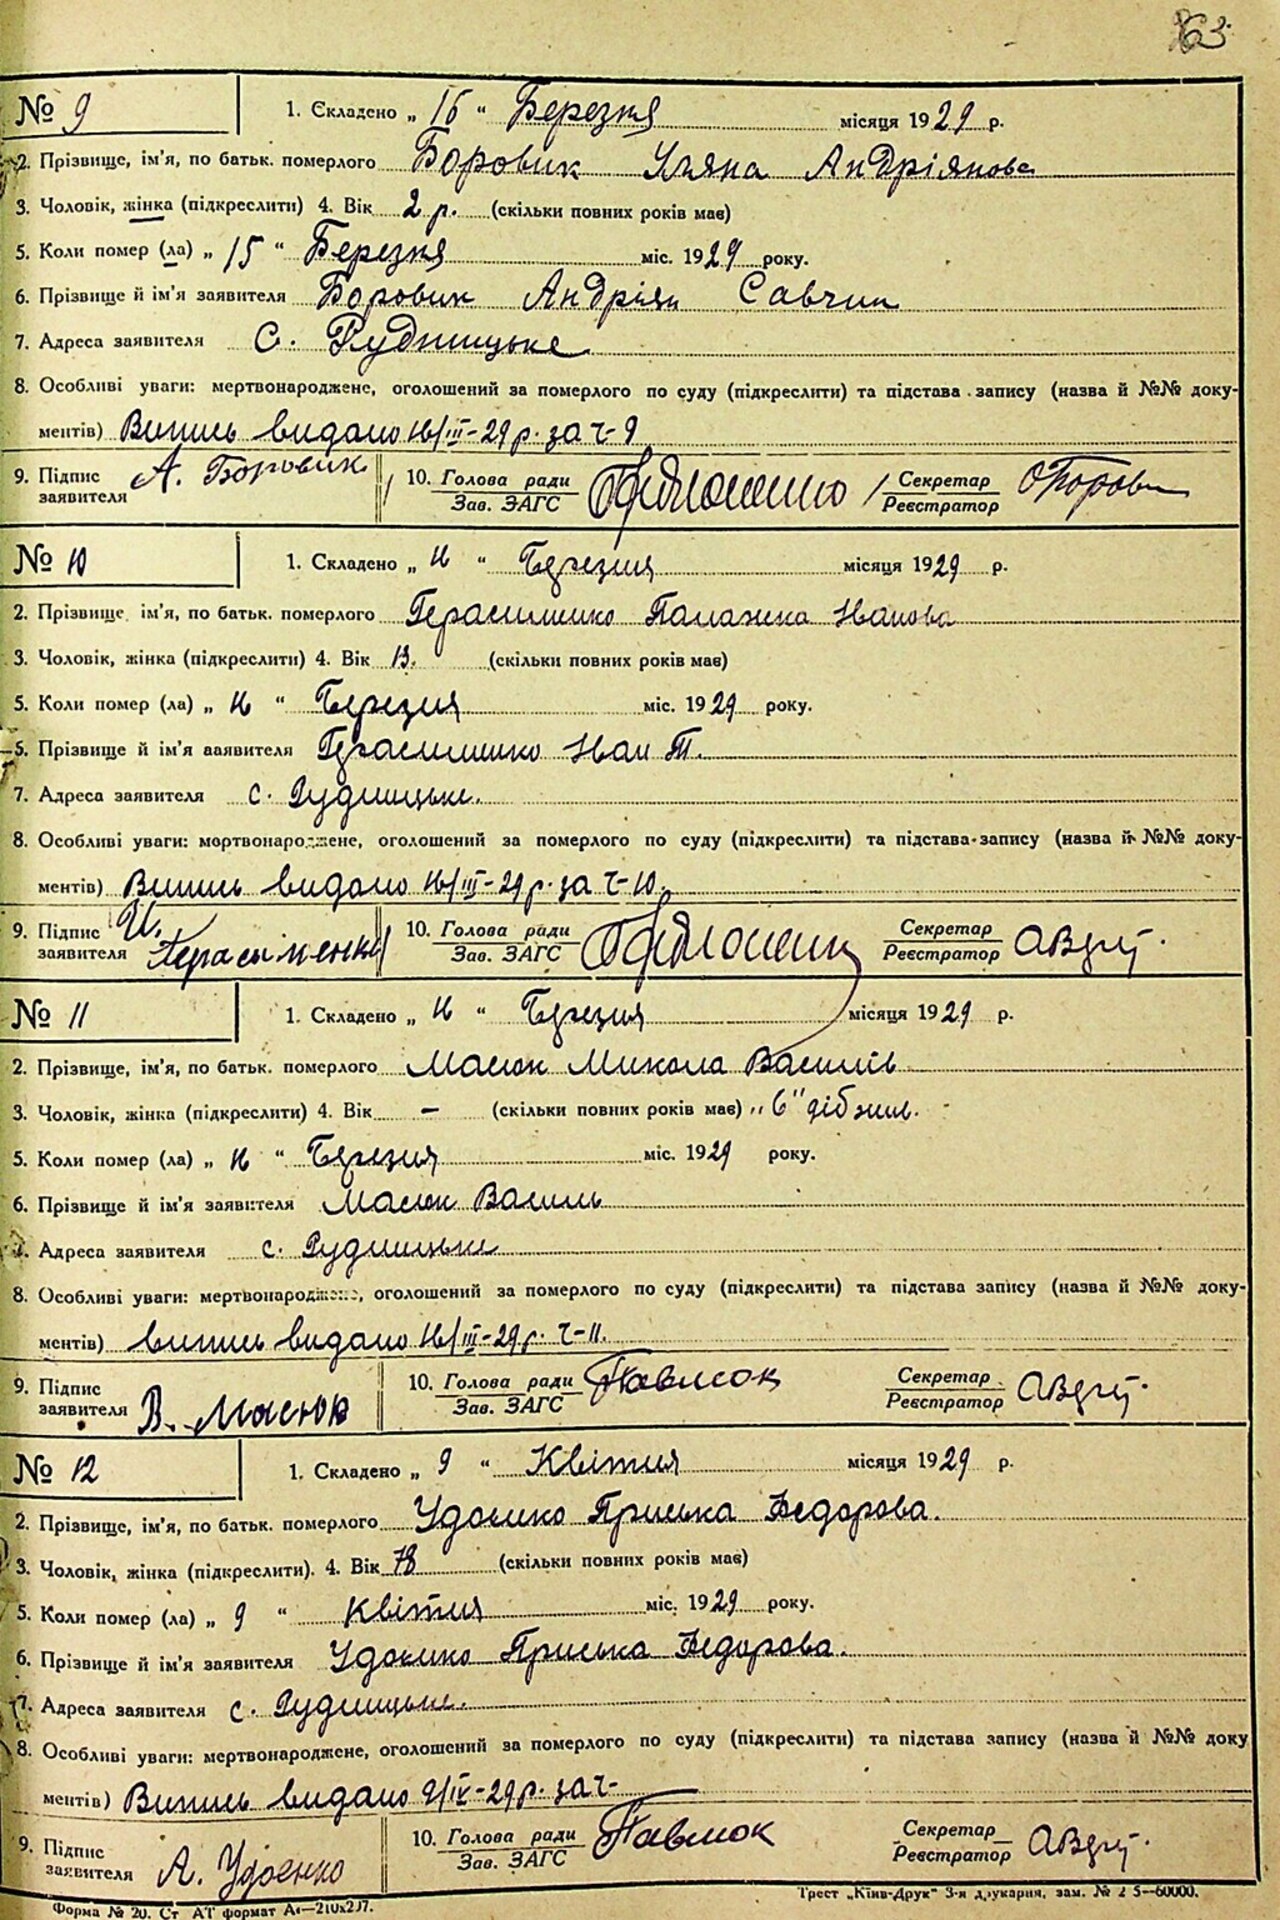 63
№ 9 1. Складено „ 16 “ Березня місяця 1929 р.
2. Прізвище, ім'я, по батьк. померлого Боровик Уляна Андріянова
3. Чоловік, жінка (підкреслити) 4. Вік 2 р. (скільки повних років має)
5. Коли помер (ла) „ 15 “ Березня міс. 1929 року.
6. Прізвище й ім'я заявителя Боровик Андріян Савчин
7. Адреса заявителя С. Рудницьке
8. Особливі уваги: мертвонароджене, оголошений за померлого по суду (підкреслити) та підстава запису (назва й №№ доку-
ментів) Випись видано 16/III-29 р. за ч-9
9. Підпис заявителя А. Боровик 10. Голова ради Зав. ЗАГС Секретар Реєстратор
№ 10 1. Складено „ 16 “ Березня місяця 1929 р.
2. Прізвище, ім'я, по батьк. померлого Герасименко Палажка Іванова
3. Чоловік, жінка (підкреслити) 4. Вік 13. (скільки повних років має)
5. Коли помер (ла) „ 16 “ Березня міс. 1929 року.
6. Прізвище й ім'я заявителя Герасименко Іван Т.
7. Адреса заявителя с. Рудницьке.
8. Особливі уваги: мертвонароджене, оголошений за померлого по суду (підкреслити) та підстава запису (назва й №№ доку-
ментів) Випись видано 16/III-29 р. за ч-10.
9. Підпис заявителя И. Герасименко 10. Голова ради Зав. ЗАГС Секретар Реєстратор
№ 11 1. Складено „ 16 “ Березня місяця 1929 р.
2. Прізвище, ім'я, по батьк. померлого Масюк Микола Василів
3. Чоловік, жінка (підкреслити) 4. Вік — (скільки повних років має) „6“ діб жив.
5. Коли помер (ла) „ 16 “ Березня міс. 1929 року.
6. Прізвище й ім'я заявителя Масюк Василь
7. Адреса заявителя с. Рудницьке
8. Особливі уваги: мертвонароджене, оголошений за померлого по суду (підкреслити) та підстава запису (назва й №№ доку-
ментів) випись видано 16/III-29 р. ч-11.
9. Підпис заявителя В. Масюк 10. Голова ради Зав. ЗАГС Павлюк Секретар Реєстратор
№ 12 1. Складено „ 9 “ Квітня місяця 1929 р.
2. Прізвище, ім'я, по батьк. померлого Удосико Приська Федорова.
3. Чоловік, жінка (підкреслити). 4. Вік 78 (скільки повних років має)
5. Коли помер (ла) „ 9 “ Квітня міс. 1929 року.
6. Прізвище й ім'я заявителя Удосико Приська Федорова.
7. Адреса заявителя с. Рудницьке.
8. Особливі уваги: мертвонароджене, оголошений за померлого по суду (підкреслити) та підстава запису (назва й №№ доку
ментів) Випись видано 9/IV-29 р. за ч-
9. Підпис заявителя А. Удоенко 10. Голова ради Зав. ЗАГС Павлюк Секретар Реєстратор
Форма № 20. Ст АТ формат А4—210х297. Трест „Київ-Друк“ 3-я друкарня, зам. № 2 5—60000.